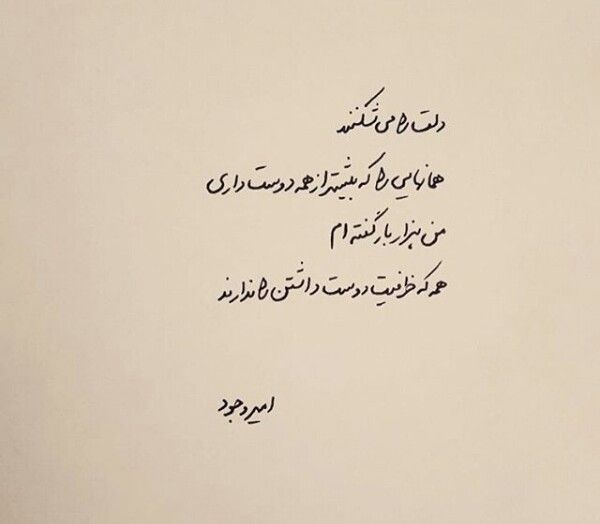 دلت را می شکنند
همانهایی را که بیشتر از همه دوست داری
من هزار بار گفته ام
همه که ظرفیت دوست داشتن را ندارند
امیر وجود